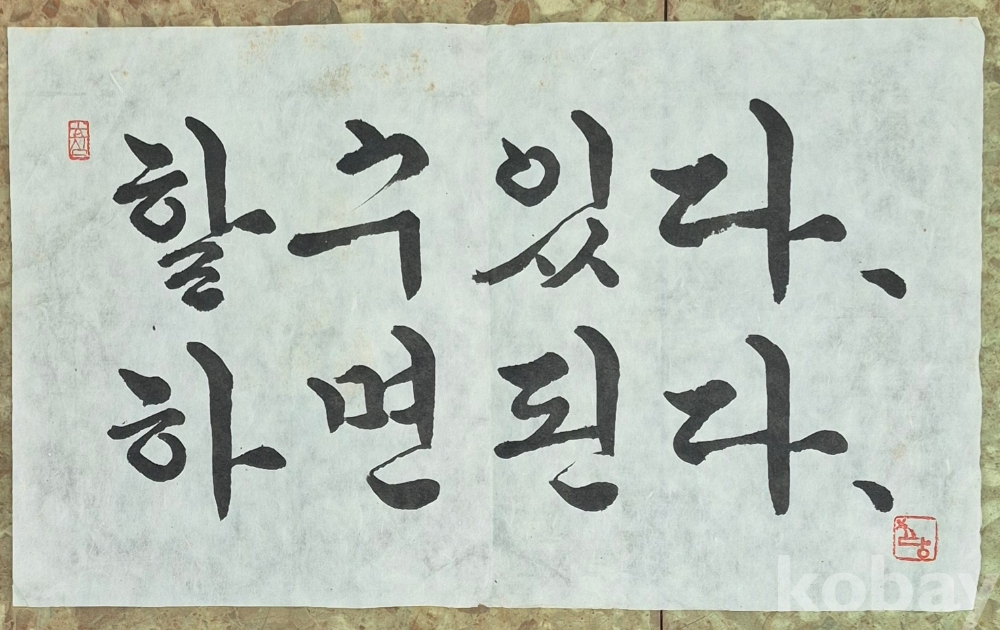 할 수 있다、
하면 된다、
kobay